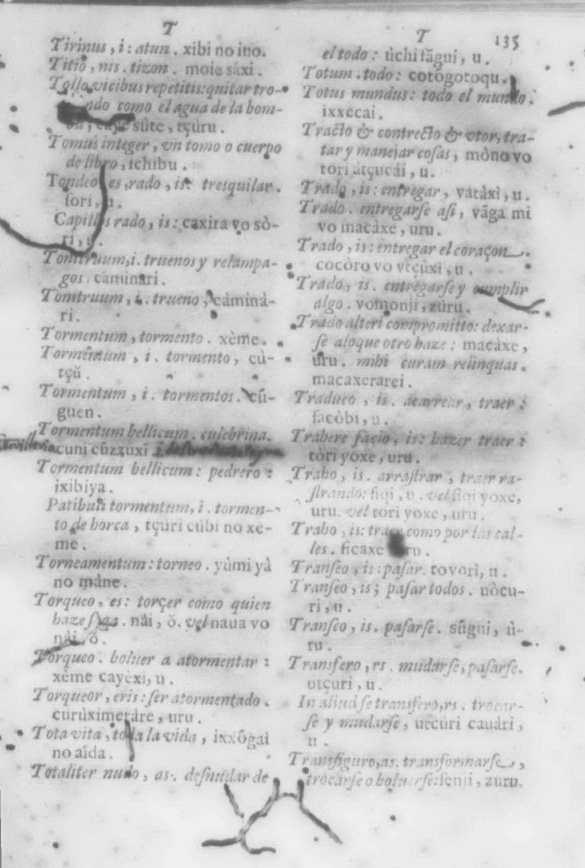 T
Tirinus, i: atun. xibi no ino.
Titio, nis. tizon. moie sàxi.
Tollo vicibus repetitis: quitar tro-
ndo como el agua de la bom-
sûte, tçuru.
Tomus integer, vn tomo o cuerpo
de libro, ichibu.
Tondeo, es, rado, is: tresquilar.
sori, u.
Capillos rado, is: caxira vo sò-
ri, u.
Tonitruum, i. truenos y relampa-
gos. caminari.
Tonitruum, i. trueno, càminà-
ri.
Tormentum, tormento. xème.
Tormentum, i. tormento, cù-
tçũ.
Tormentum, i. tormentos. cũ-
guen.
Tormentum bellicum. culebrina.
cuni cũzzuxi
Tormentum bellicum: pedrero:
ixibiya.
Patibuli tormentum, i. tormen-
to de horca, tçuri cùbi no xe-
me.
Torneamentum: torneo. yùmi yà
no màne.
Torqueo, es: torçer como quien
haze soga. nài, ŏ. vel naua vo
nài, ŏ.
Torqueo. boluer a atormentar:
xème cayèxi, u.
Torqueor, eris: ser atormentado.
curùximeràre, uru.
Tota vita, toda la vida, ixxŏgai
no aìda.
Totaliter nudo, as. desnudar de
T 135
el todo: ùchi fãgui, u.
Totum. todo: cotògotoqu.
Totus mundus: todo el mundo.
ixxècai.
Tracto & contrecto & vtor, tra-
tar y manejar cosas, mòno vo
tori àtçucài, u.
Trado, is: entregar, vatàxi, u.
Trado. entregarse asi, vãga mi
vo macàxe, uru.
Trado, is: entregar el coraçon.
cocòro vo vtçùxi, u.
Trado, is. entregarse y cumplir
algo. vomonji, zuru.
Trado alteri compromitto: dexar-
se a lo que otro haze: macàxe,
uru. mihi curam relinquas.
macaxerarei.
Traduco, is. acarrear, traer:
facòbi, u.
Trahere facio, is: hazer traer:
tòri yoxe, uru.
Traho, is. arrastrar, traer ra-
strando: fiqi, u. vel fiqi yoxe,
uru. vel tori yoxe, uru.
Traho, is: traer como por las cal-
les. ficaxe ru.
Transeo, is: pasar. tovorì, u.
Transeo, is; pasar todos. uòcu-
ri, u.
Transeo, is. pasarse. sũgui, ù-
ru.
Transfero, rs. mudarse, pasarse.
utçuri, u.
In aliud se transfero, rs. trocar-
se y mudarse, utçuri cauàri,
u.
Transfiguro, as. transformarse,
trocarse o boluerse: fenji, zuru.